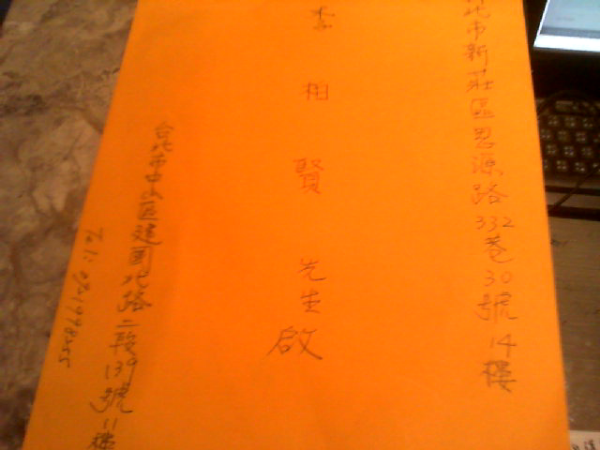 北市新莊區思源路332巷30號14樓
李柏賢先生啟
台北市中山區建國北路二段139號11樓